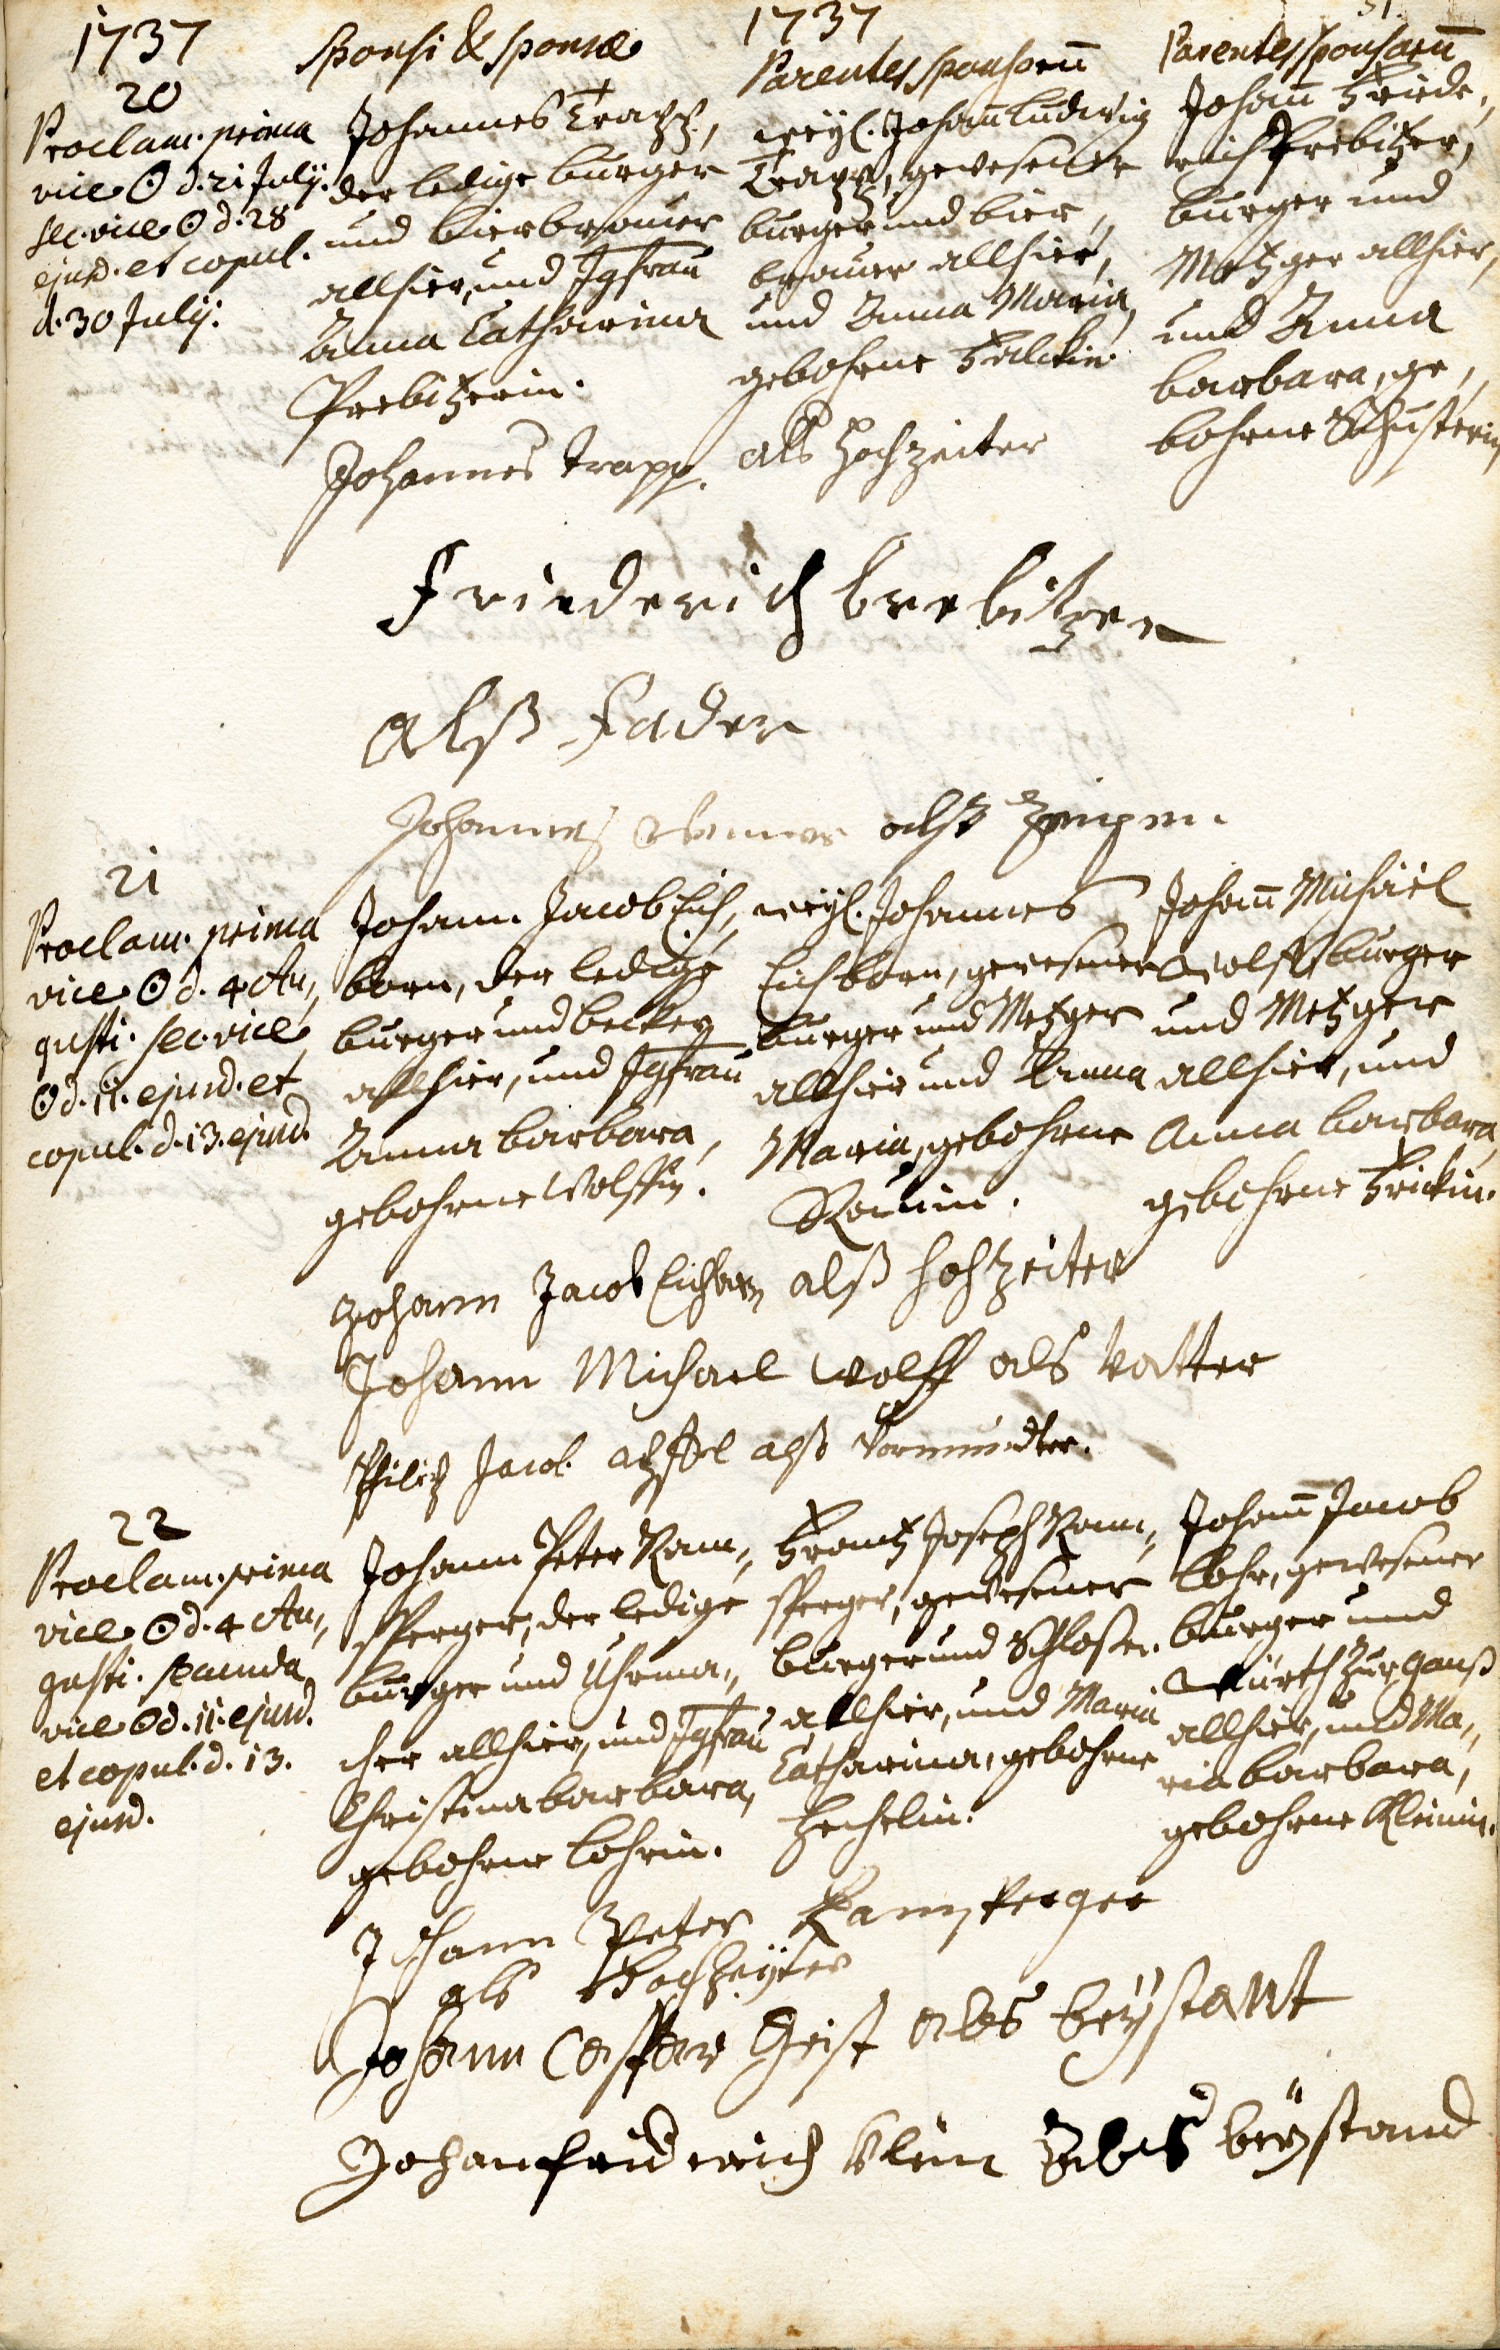 1737
Sponsi & Sponsæ
1737
Parentes Sponsorum̄
Parentes Sponsarum̄
20
Proclam. prima
vice ☉ d. 21 Julij.
sec. vice ☉ d. 28
ejusd. et copul.
d. 30 Julij.
Johannes Trapp,
der ledige burger
und bierbrauer
allhier, und Jgfrau
Anna Catharina
Prebitzerin.
weyl. Johañ Ludwig
Trapp, gewesener
burger und bier,,
brauer allhier,
und Anna Maria,
gebohrne Falckin.
Johañ Friede,,
rich Prebitzer,
burger und
Metzger allhier,
und Anna
barbara, ge,,
bohrne Schusterin
Johannes Trapp. als Hochzeiter
Friederich brebitzer
Alß Fader
Johannes als Zeigen.
21
Proclam. prima
vice ☉ d. 4 Au,,
gusti. sec. vice
☉ d. 11. ejusd. et
copul. d. 13. ejusd.
Johann Jacob Eich,,
born, der ledige
burger und becker
allhier, und Jgfrau
Anna barbara,
gebohrne Wolffin.
weyl. Johannes
Eichborn, gewesener
burger und Metzger
allhier und Anna
Maria, gebohrne
Johañ Michäel
Wolff, burger
und Metzger
allhier, und
Anna barbara,
gebohrne Frickin.
Johann Jacob Eichborn alß hochzeiter
Johann Michael Wolff als Vatter
Philip Jacob alß Vormundter.
22
Proclam. prima
vice ☉ d. 4 Au,,
gusti. secunda
vice ☉ d. 11. ejusd.
et copul. d. 13.
ejusd.
Johann Peter Ram,,
sperger, der ledige
burger und Uhrma,,
cher allhier, und Jgfrau
Christina barbara,
gebohrne Lohrin.
Frantz Joseph Ram,,
sperger, gewesener
burger und Schloßer
allhier, und Maria
Catharina, gebohrne
Hechelin.
Johañ Jacob
Lohr, gewesener
burger und
Würth zur Ganß
allhier, und Ma,,
ria barbara,
gebohrne Kleinin.
Johann Peter Ramsperger
als Hochzeyter
Johann Casper Geist als beystant
Johan fridrich Klein Als beystand